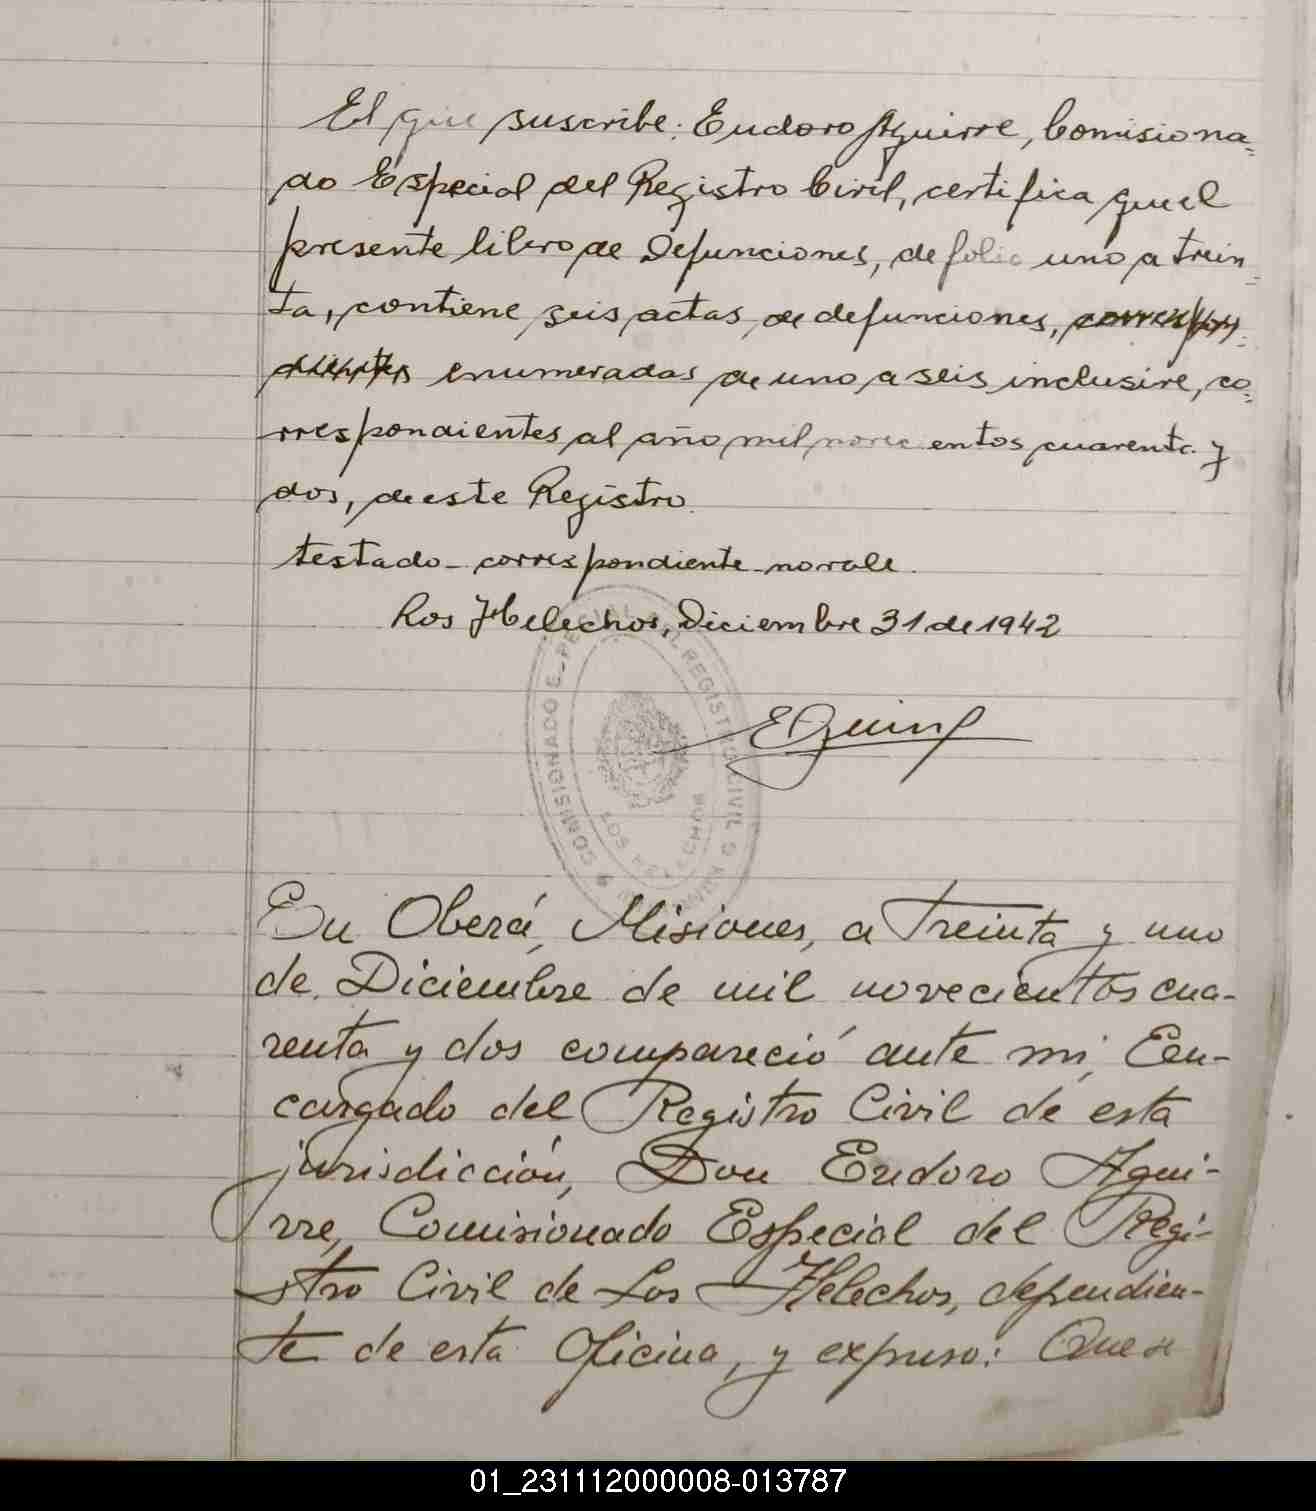 El que suscribe: Eudoro Aguirre, Comisiona=
do Especial del Registro Civil, certifica que el
presente libro de Defunciones, de folio uno a trein
ta, contiene seis actas de defunciones, correspon=
dientes enumeradas de uno a seis inclusive, co=
rrespondientes al año mil novecientos cuarenta y
dos, de este Registro.
testado - correspondiente - no vale.
Los Helechos, Diciembre 31 de 1942
COMISIONADO ESPECIAL DEL REGISTRO CIVIL
LOS HELECHOS
En Oberá, Misiones, a treinta y uno
de Diciembre de mil novecientos cua-
renta y dos compareció ante mí, Een-
cargado del Registro Civil de esta
jurisdicción, Don Eudoro Agui-
rre, Comisionado Especial del Regi-
stro Civil de Los Helechos, dependien-
te de esta Oficina, y expuso: Que
01_231112000008-013787